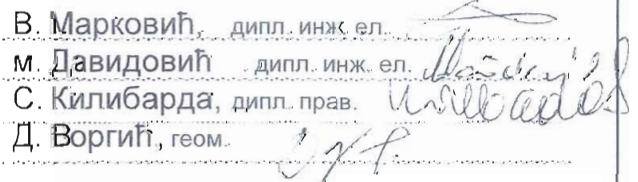 В. Марковић, дипл. инж. ел.
М. Давидовић дипл. инж. ел.
С. Килибарда, дипл. прав.
Д. Воргић, геом.